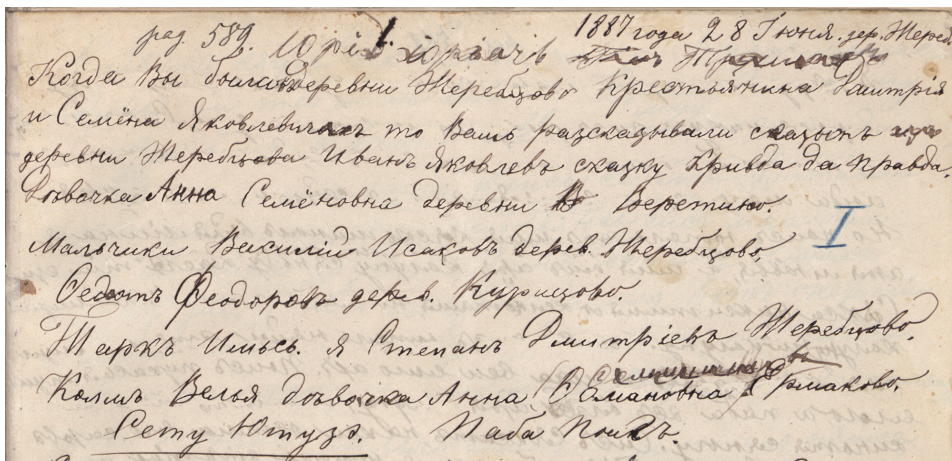 ряд. 589. Юрiй 1887 года 28 Iюня. дер. Жереб
Когда Вы были деревни Жеребцово Крестьянина Дмитрiя
и Семёна Яковлевичахъ то Вашъ разсказывали сказкнъ изъ
деревни Жеребцова Иванъ Яковлевъ сказку Кривда да правда.
Дѣвочка Анна Семёновна деревни Веретино.
I
Мальчики Василiй Исаковъ дерев. Жеребцово,
Ѳедотъ Ѳеодоровъ дерев. Курицово.
Таркъ Имьсь. я Степанъ Дмитрiевъ Жеребцово.
Колмъ Велья дѣвочка Анна Романовна Ермаково.
Сету Ютузэ. Паба Поигъ.